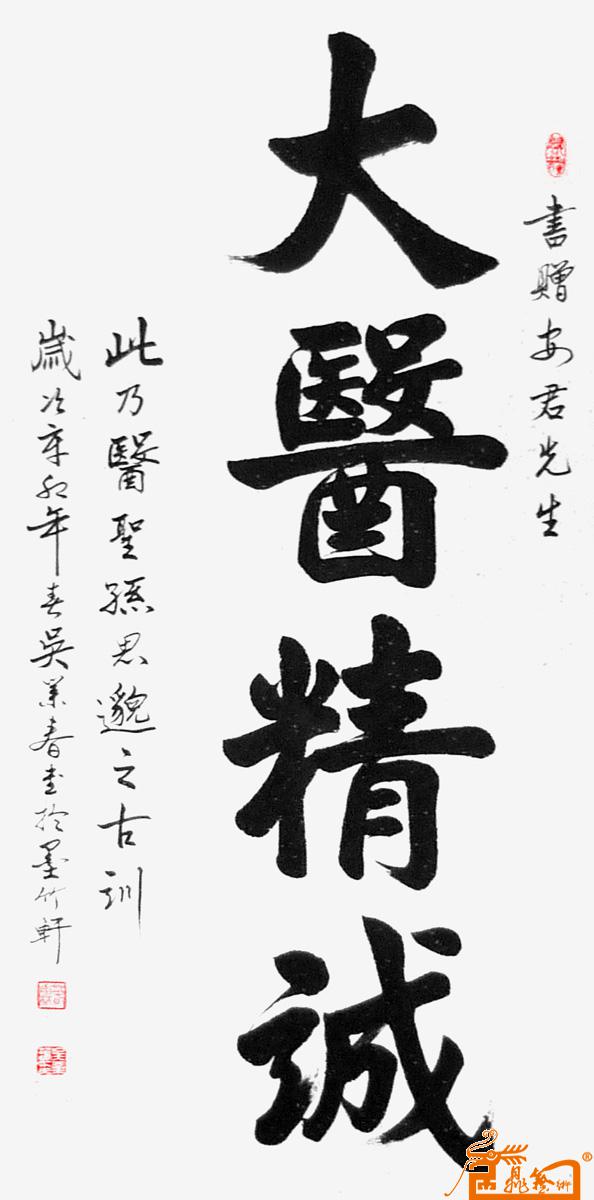 書贈安君先生
大醫精誠
此乃醫聖孫思邈之古訓
歲次辛卯年春吳業春書於墨竹軒